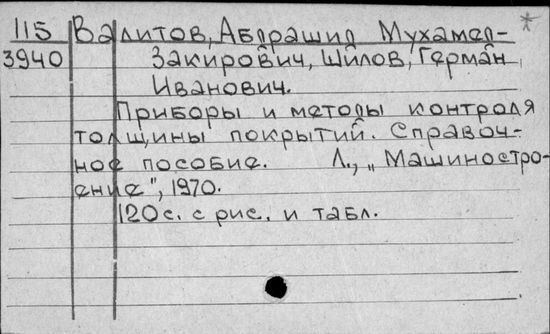 115 Валитов, Абдрашид Мухамед-
3940 Закирович, Шилов, Герман
Иванович.
Приборы и методы контроля
толщины покрытий. Справоч-
ное пособие. Л., „Машиностро-
ение", 1970.
120 с. с рис. и табл.